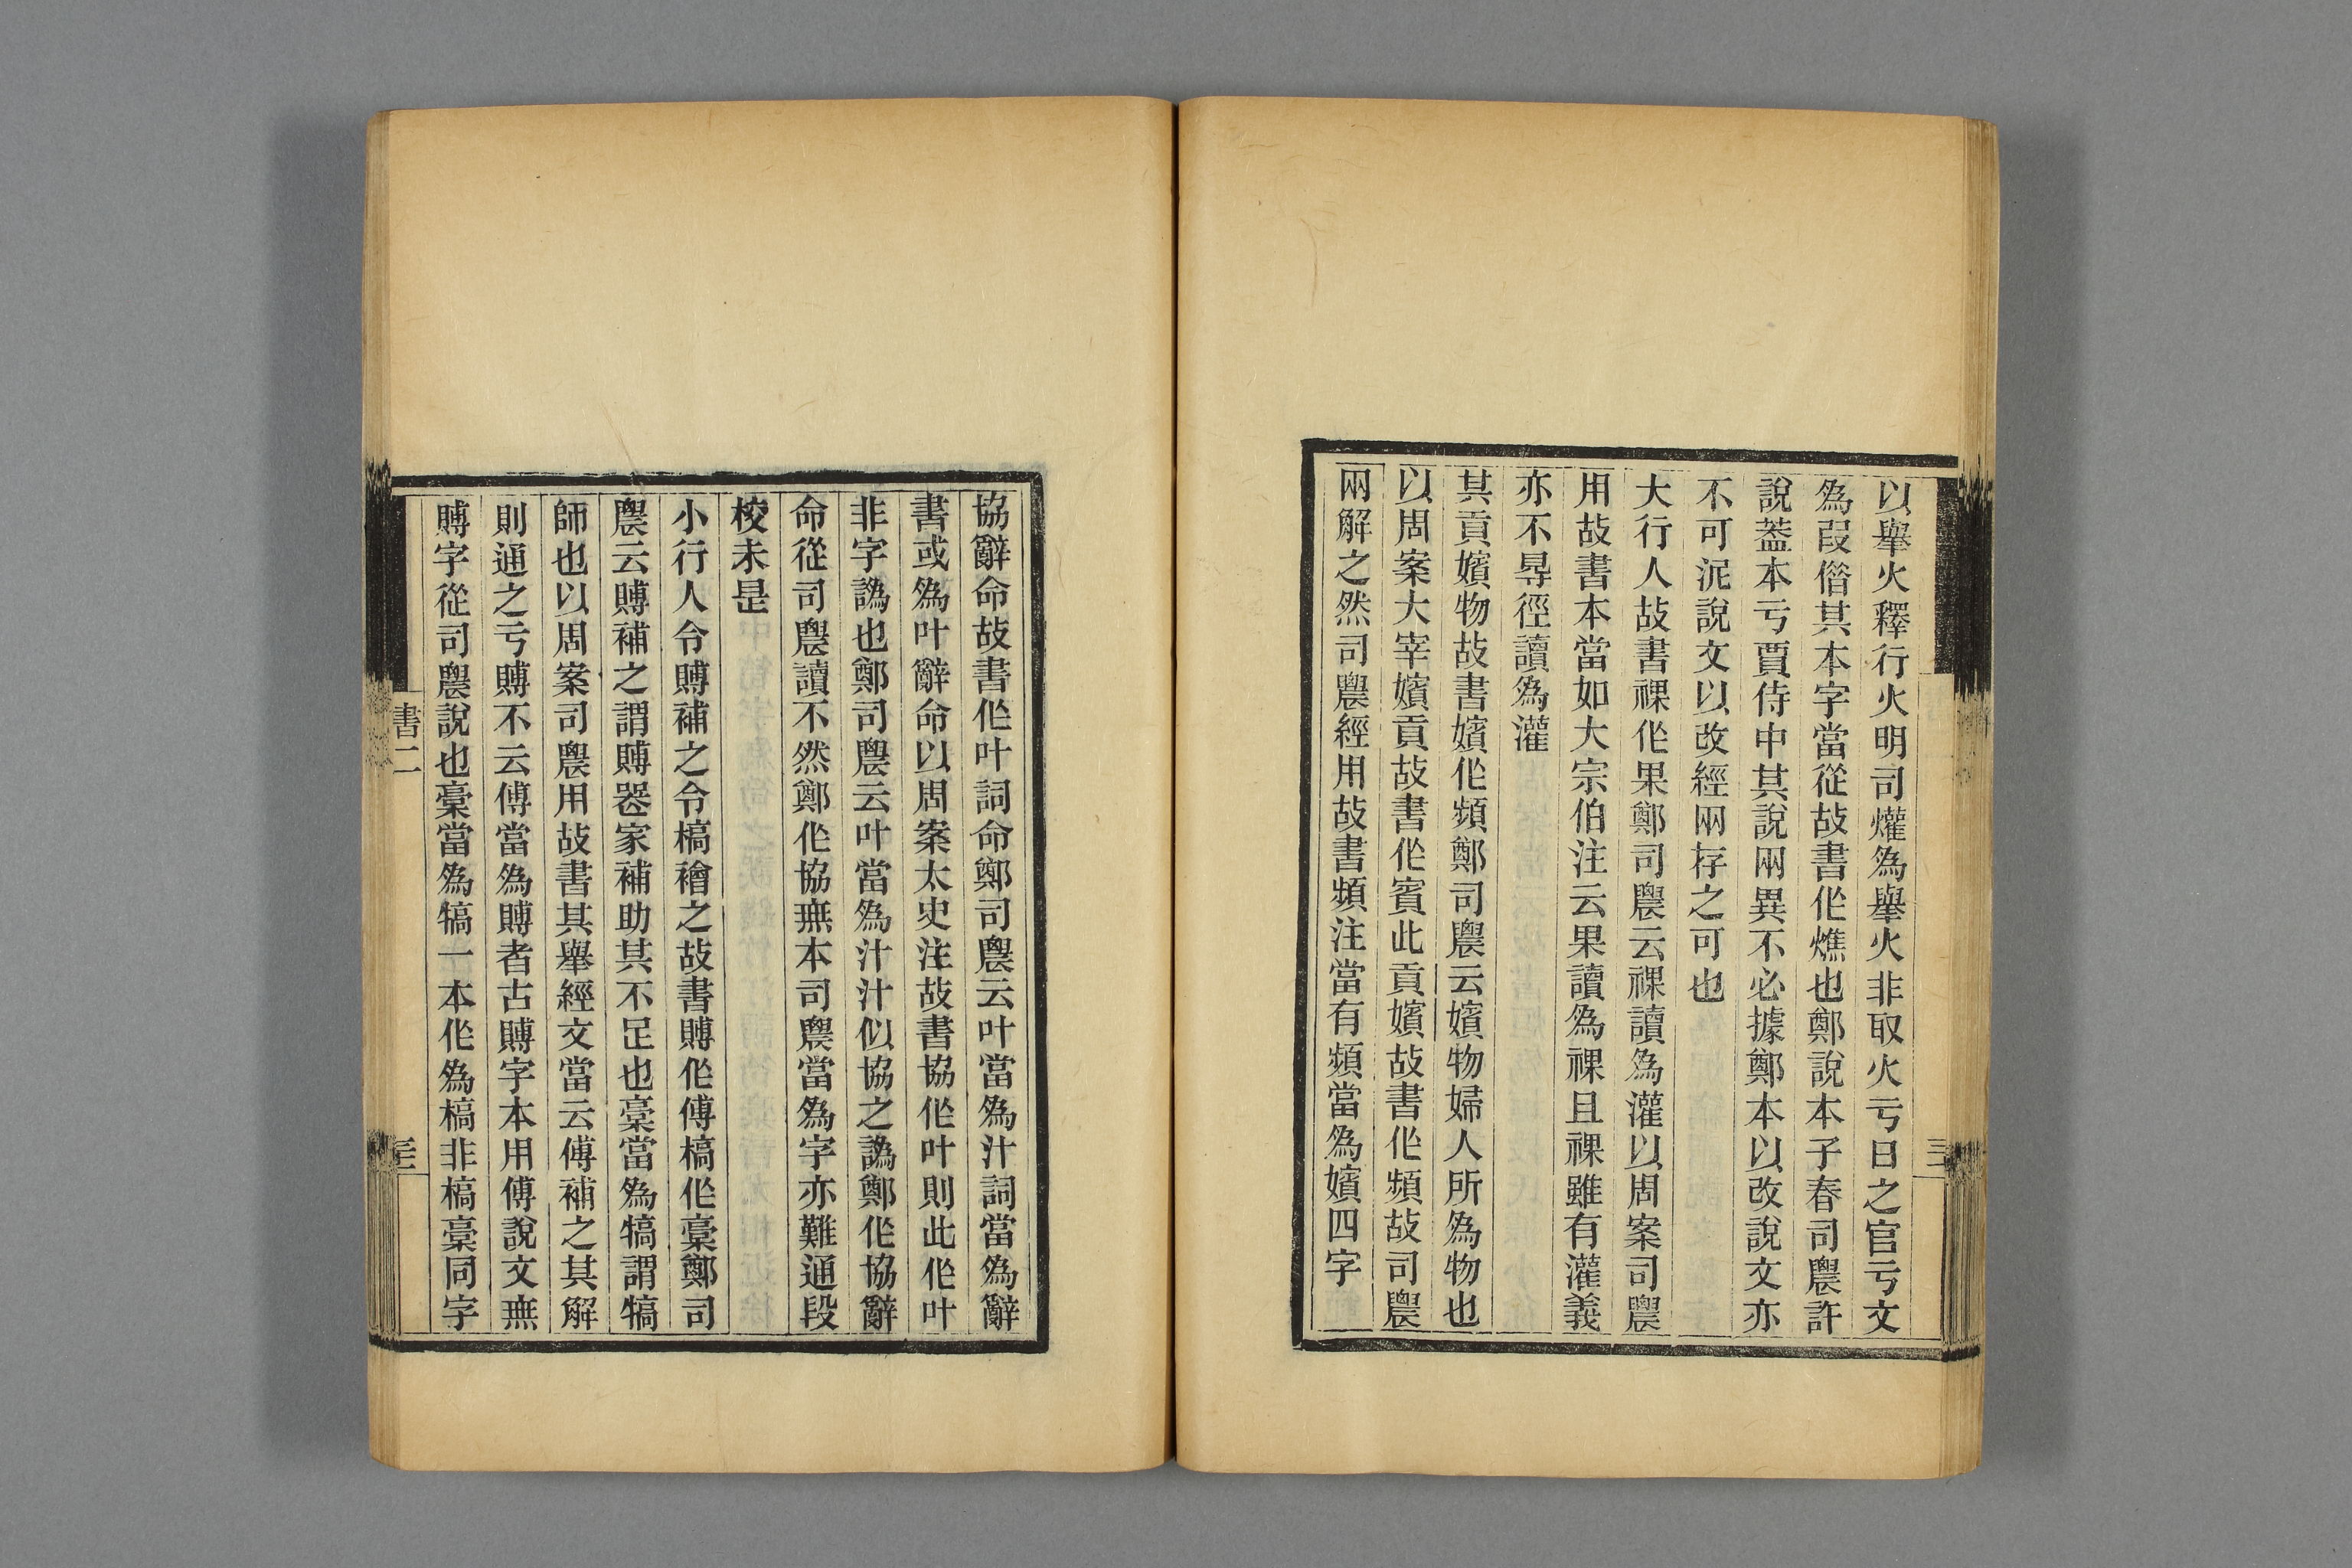 以舉火釋行火明司爟爲舉火非取火亏日之官亏文
爲叚偺其本字當從故書作燋也鄭說本子春司農許
說葢本亏賈侍中其說兩異不必據鄭本以改說文亦
不可泥說文以改經兩存之可也
大行人故書祼作果鄭司農云祼讀爲灌以周案司農
用故書本當如大宗伯注云果讀爲祼且祼雖有灌義
亦不㝵徑讀爲灌
其貢嬪物故書嬪作頻鄭司農云嬪物婦人所爲物也
以周案大宰嬪貢故書作賓此貢嬪故書作頻故司農
兩解之然司農經用故書頻注當有頻當爲嬪四字
協辭命故書作叶詞命鄭司農云叶當爲汁詞當爲辭
書或爲叶辭命以周案太史注故書協作叶則此作叶
非字譌也鄭司農云叶當爲汁汁似協之譌鄭作協辭
命從司農讀不然鄭作協無本司農當爲字亦難通段
校未是
小行人令賻補之令槁禬之故書賻作傅槁作稾鄭司
農云賻補之謂賻喪家補助其不足也稾當爲犒謂犒
師也以周案司農用故書其舉經文當云傅補之其解
則通之亏賻不云傅當爲賻者古賻字本用傅說文無
賻字從司農說也稾當爲犒一本作爲槁非槁稾同字
書二